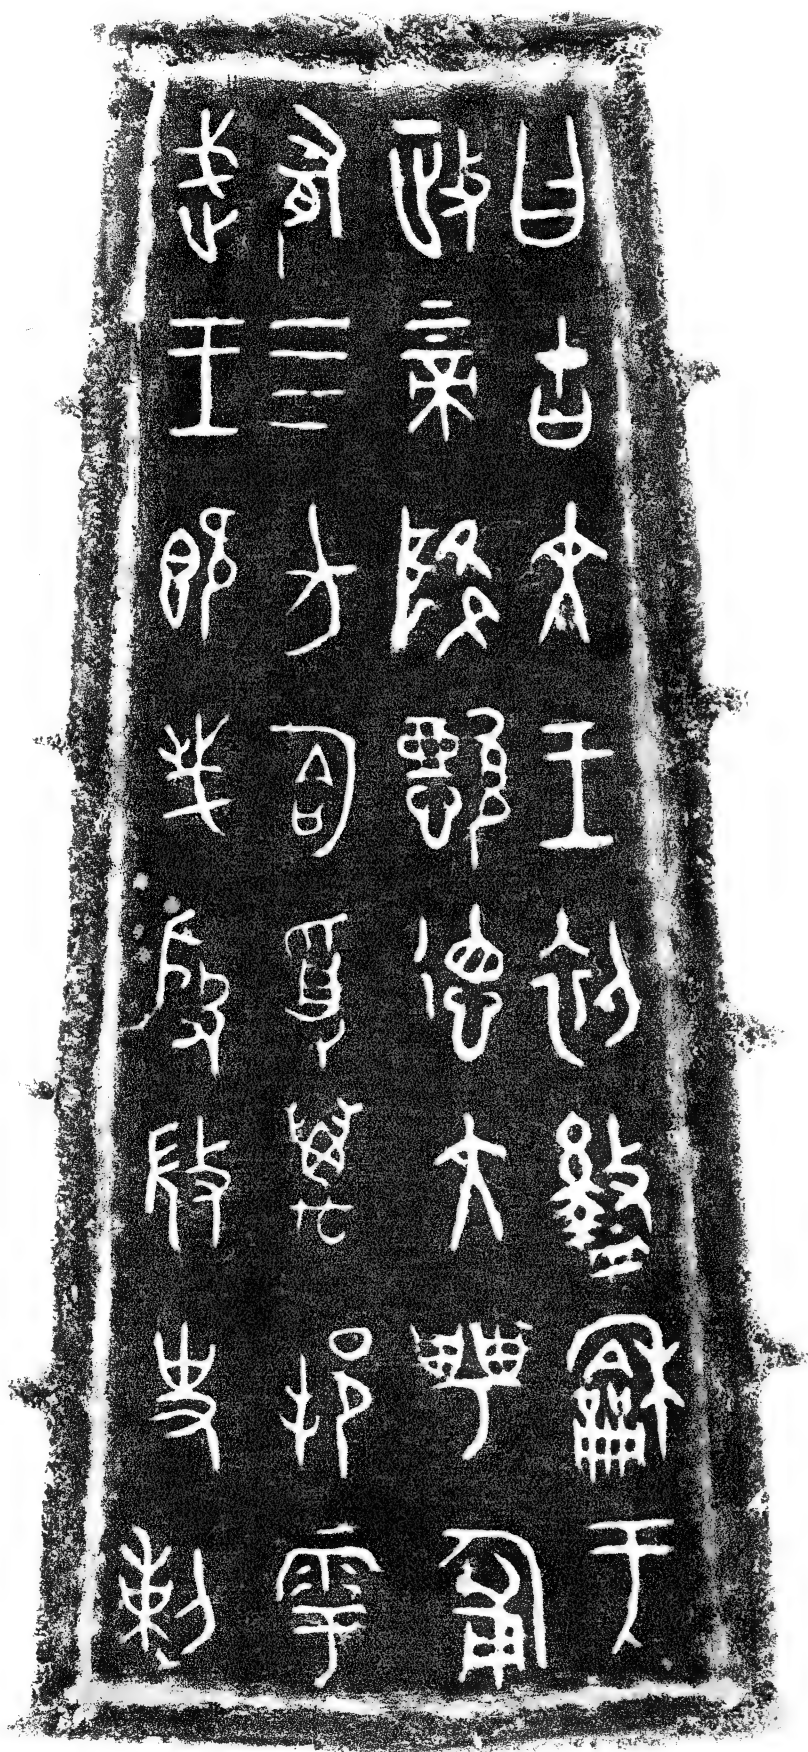 曰古文王初盭龢于
政上帝降懿德大甹匍
有四方匌受萬邦雩
武王既𢦏殷微史剌